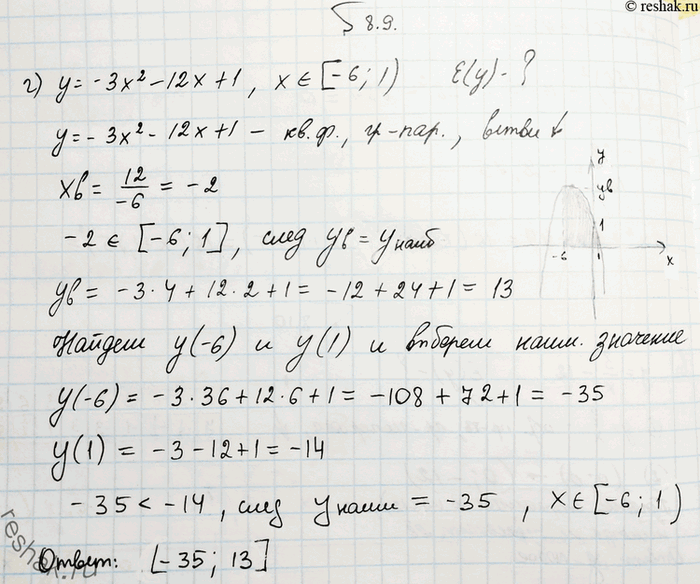 © reshak.ru
§ 8.9.
г) y = -3x² - 12x + 1, x ∈ [-6; 1) E(y) - ?
y = -3x² - 12x + 1 - кв. ф., гр-пар., ветви ↓
xв = 12/-6 = -2
-2 ∈ [-6; 1], след yв = yнаиб
yв = -3·4 + 12·2 + 1 = -12 + 24 + 1 = 13
Найдем y(-6) и y(1) и выберем наим. значение
y(-6) = -3·36 + 12·6 + 1 = -108 + 72 + 1 = -35
y(1) = -3 - 12 + 1 = -14
-35 < -14, след yнаим = -35, x ∈ [-6; 1)
Ответ: [-35; 13]
y
yв
1
-6
1
x
reshak.ru